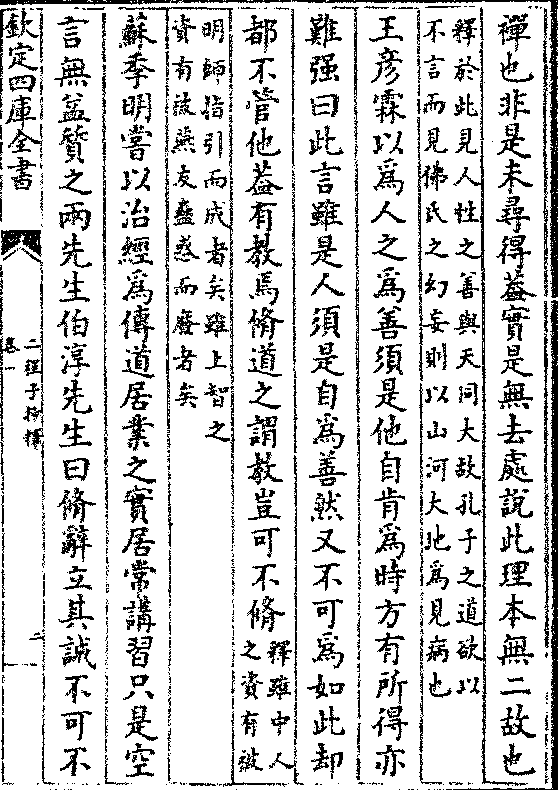 禪也非是未尋得葢實是無去處說此理本無二故也
釋於此見人性之善與天同大故孔子之道欲以
不言而見佛氏之幻妄則以山河大地為見病也
王彥霖以爲人之爲善須是他自肯爲時方有所得亦
難强曰此言雖是人須是自爲善然又不可爲如此却
都不管他葢有教焉脩道之謂教豈可不脩
釋雖中人
之資有被
明師指引而成者矣雖上智之
資有被燕友蠱惑而廢者矣
蘇季明嘗以治經爲傳道居業之實居常講習只是空
言無益質之兩先生伯淳先生曰脩辭立其誠不可不
欽定四庫全書
卷一
二程子抄釋
二